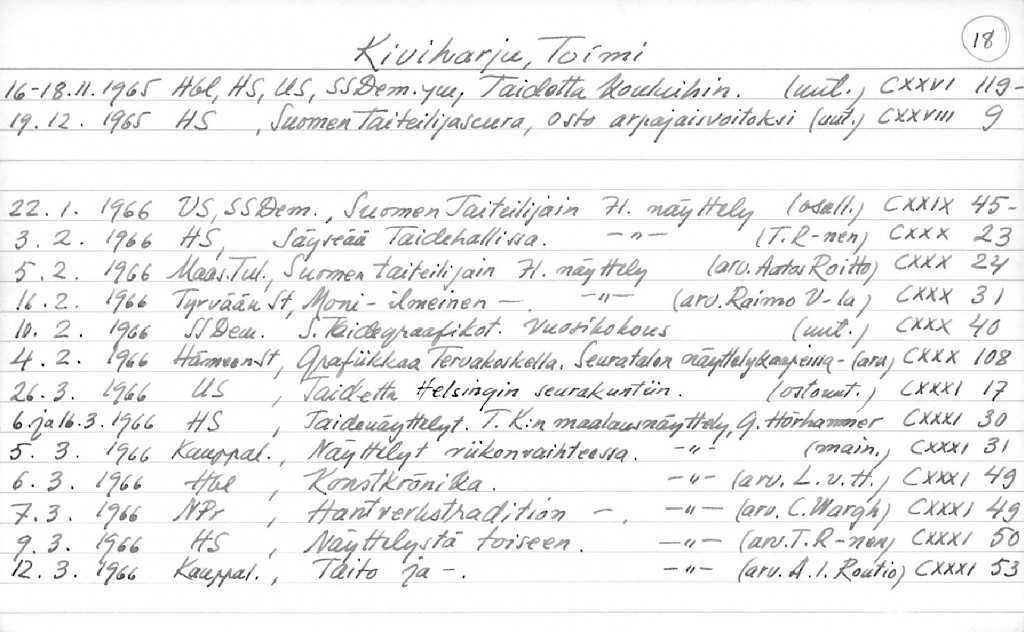 18
Kiviharju, Toimi
16-18.11.1965 Hbl, HS, US, SSDem. ym, Taidetta kouluihin. (uut.) CXXVI 119-
19.12. 1965 HS , Suomen Taiteilijaseura, osto arpajaisvoitoksi (uut.) CXXVIII 9
22.1. 1966 US, SSDem., Suomen Taiteilijain 71. näyttely (osall.) CXXIX 45-
3.2. 1966 HS, Säyseää Taidehallissa. -"- (T.R-nen) CXXX 23
5.2. 1966 Maas.Tul., Suomen taiteilijain 71. näyttely (arv. Aatos Roitto) CXXX 24
16.2. 1966 Tyrvään St, Moni-ilmeinen - -"- (arv. Raimo V-la) CXXX 31
10.2. 1966 SSDem. S. Taidegraafikot. Vuosikokous (uut.) CXXX 40
4.2. 1966 Hämeen St, Grafiikkaa Tervakoskella. Seuratalon näyttelykaapeissa - (arv.) CXXX 108
26.3. 1966 US , Taidetta Helsingin seurakuntiin. (ostouut.) CXXXI 17
6. ja 16.3. 1966 HS , Taidenäyttelyt. T. K:n maalausnäyttely, G. Hörhammer CXXXI 30
5.3. 1966 Kauppal., Näyttelyt viikonvaihteessa. -"- (main.) CXXXI 31
6.3. 1966 Hbl , Konstkrönika. -"- (arv. L.v.H.) CXXXI 49
7.3. 1966 NPr , Hantverkstradition -. -"- (arv. C. Wargh) CXXXI 49
9.3. 1966 HS , Näyttelystä toiseen. -"- (arv. T.R-nen) CXXXI 50
12.3. 1966 Kauppal., Taito ja -. -"- (arv. A.I. Routio) CXXXI 53